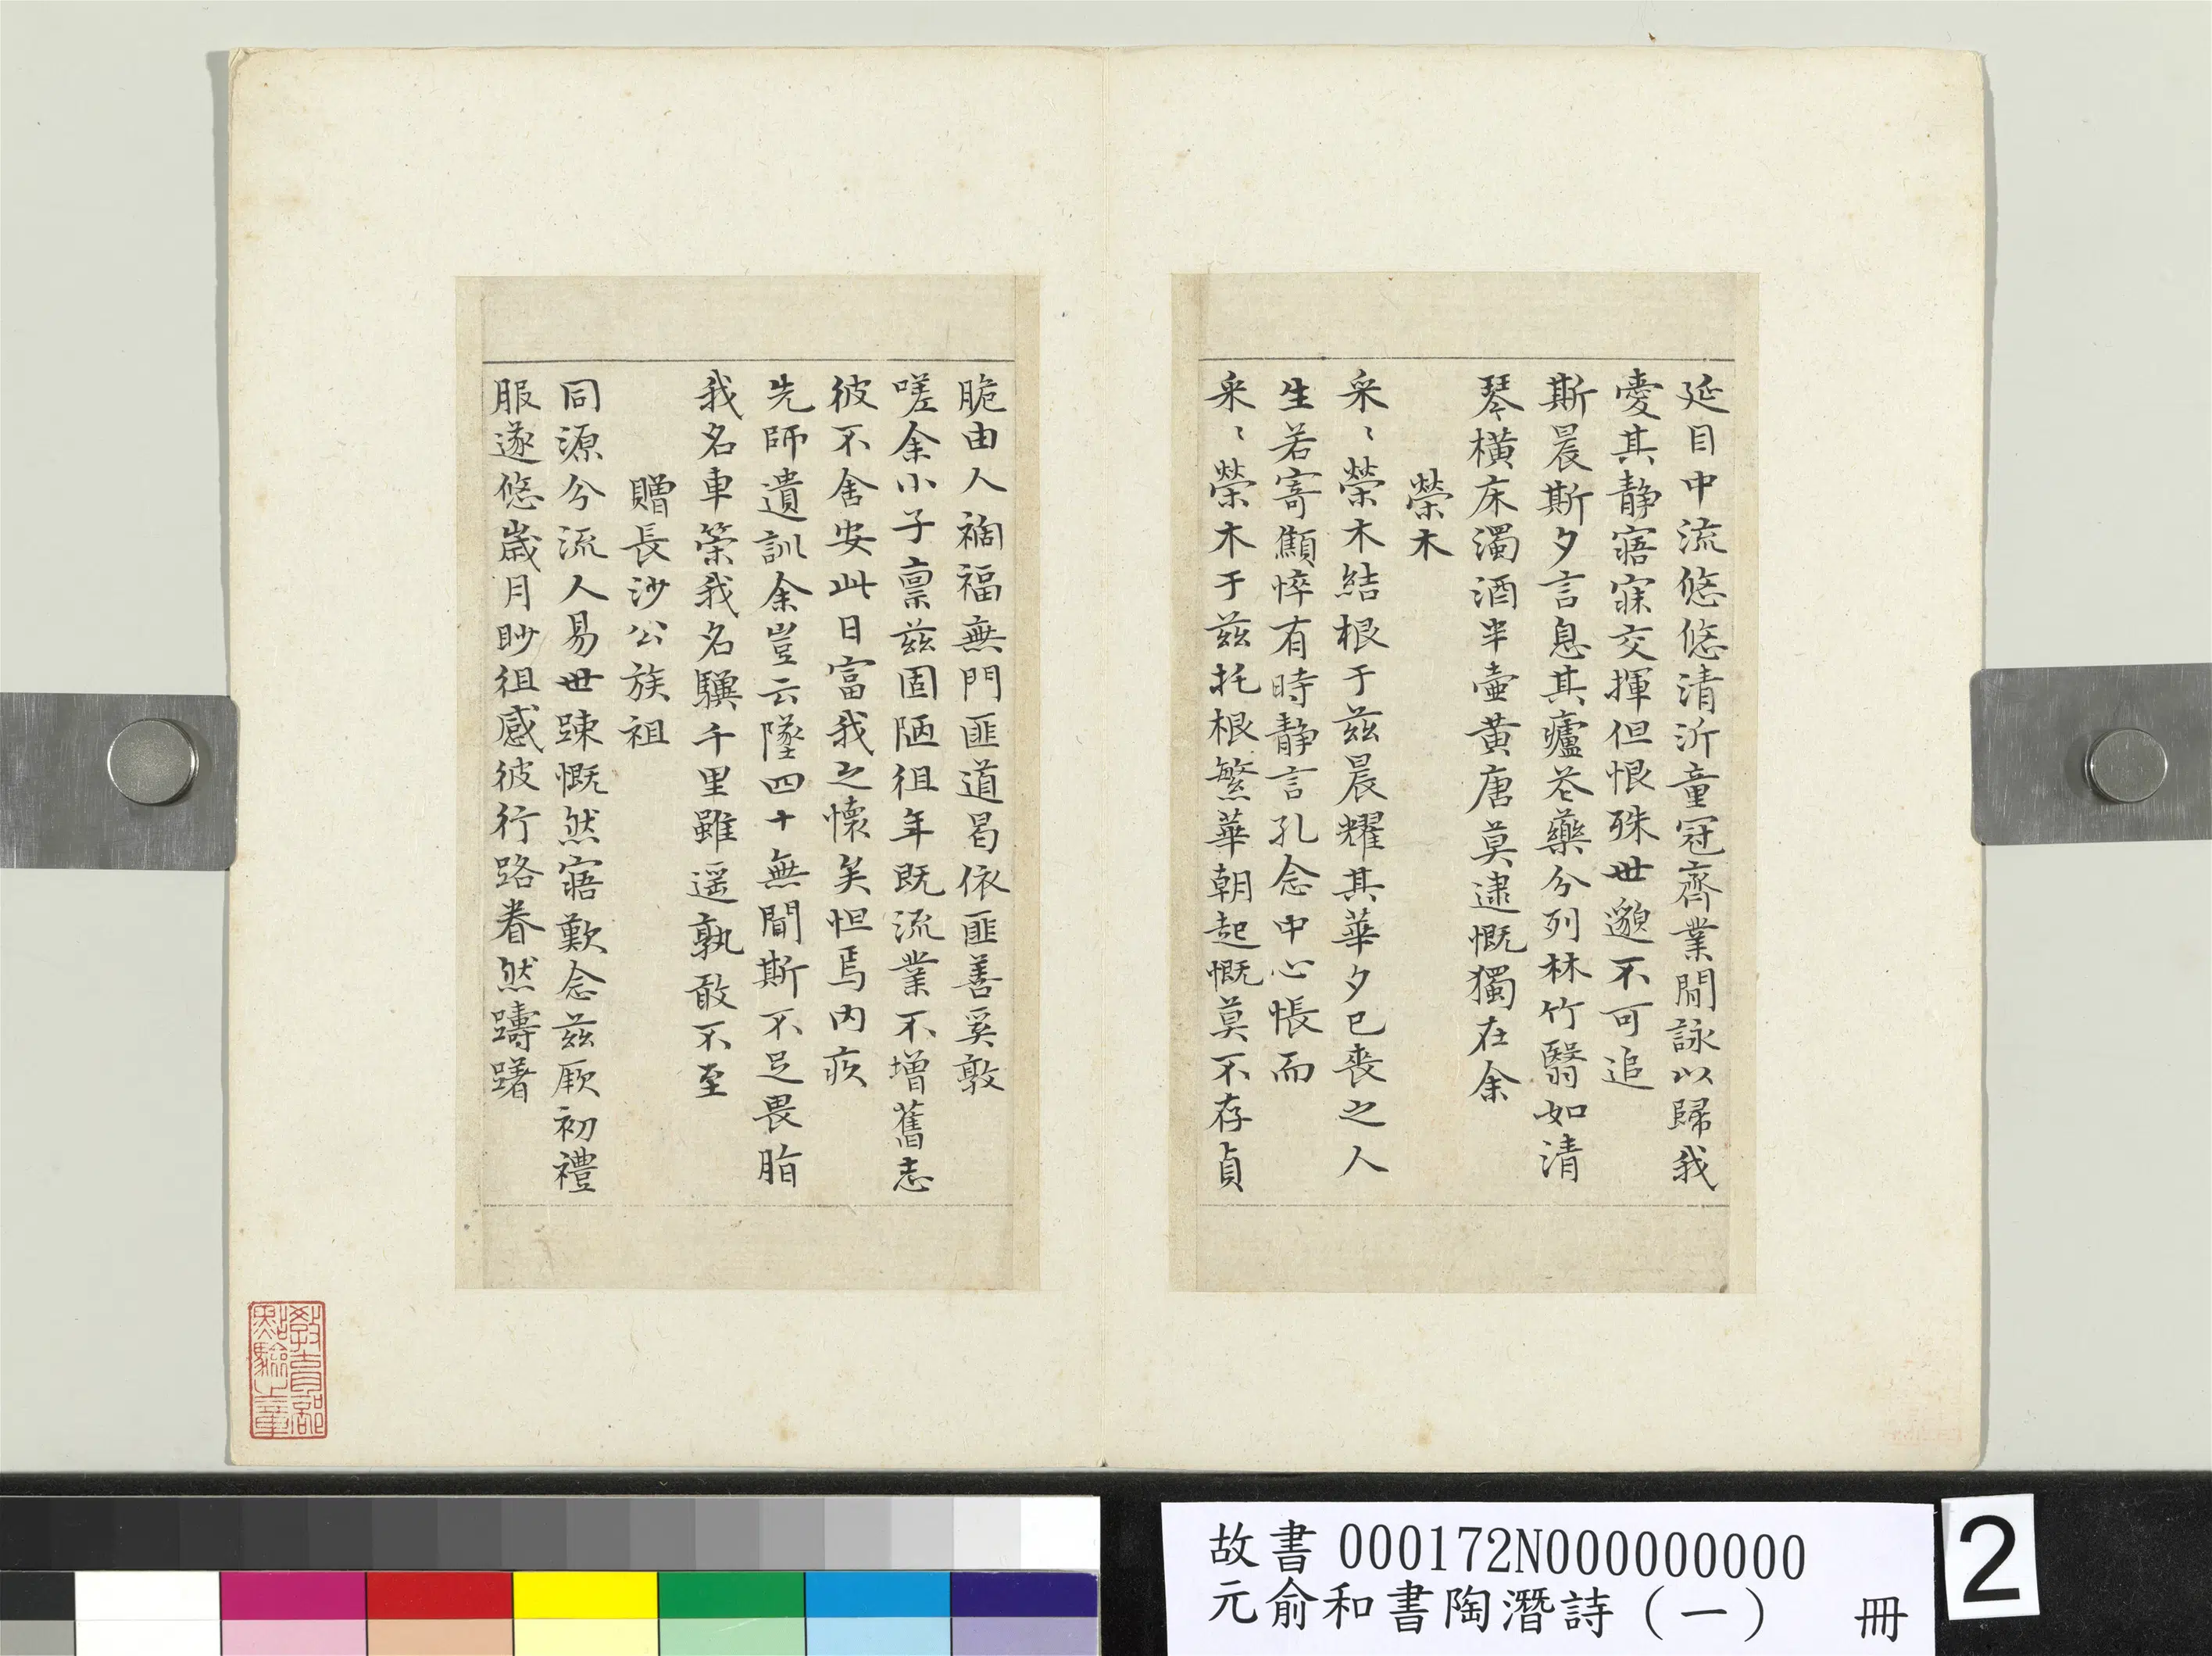 延目中流悠悠清沂童冠齊業閒詠以歸我
愛其静寤寐交揮但恨殊世邈不可追
斯晨斯夕言息其廬花藥分列林竹翳如清
琴横床濁酒半壷黄唐莫逮慨獨在余
榮木
采〻榮木結根于兹晨耀其華夕已喪之人
生若寄顦悴有時静言孔念中心悵而
采〻榮木于兹托根繁華朝起慨莫不存貞
脆由人禍福無門匪道曷依匪善奚敦
嗟余小子禀兹固陋徂年既流業不增舊志
彼不舍安此日富我之懐矣怛焉内疚
先師遺訓余豈云墜四十無聞斯不足畏脂
我名車策我名驥千里雖遥孰敢不至
贈長沙公族祖
同源分流人易世踈慨然寤歎念兹厥初禮
服遂悠歲月眇徂感彼行路眷然躊躇
教育部
點驗之章
故書 000172N000000000
元俞和書陶潛詩（一） 冊
2